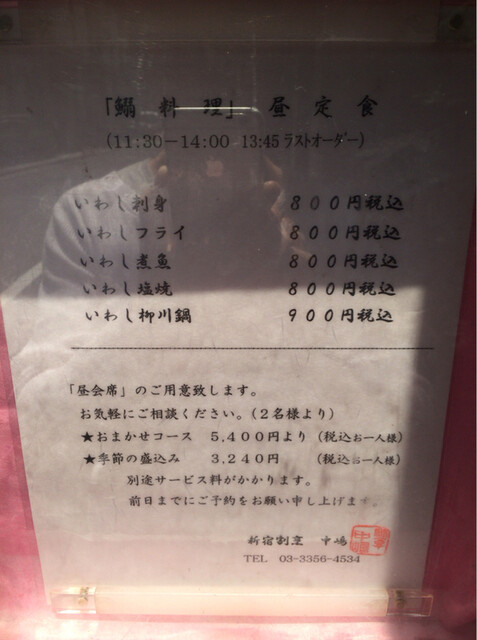 「鰯 料 理」 昼 定 食
(11:30－14:00 13:45 ラストオーダー)
いわし刺身 ８００円税込
いわしフライ ８００円税込
いわし煮魚 ８００円税込
いわし塩焼 ８００円税込
いわし柳川鍋 ９００円税込
「昼会席」のご用意致します。
お気軽にご相談ください。(２名様より)
★おまかせコース 5,400円より (税込お一人様)
★季節の盛込み 3,240円 (税込お一人様)
別途サービス料がかかります。
前日までにご予約をお願い申し上げます。
新宿割烹 中嶋
TEL 03-3356-4534